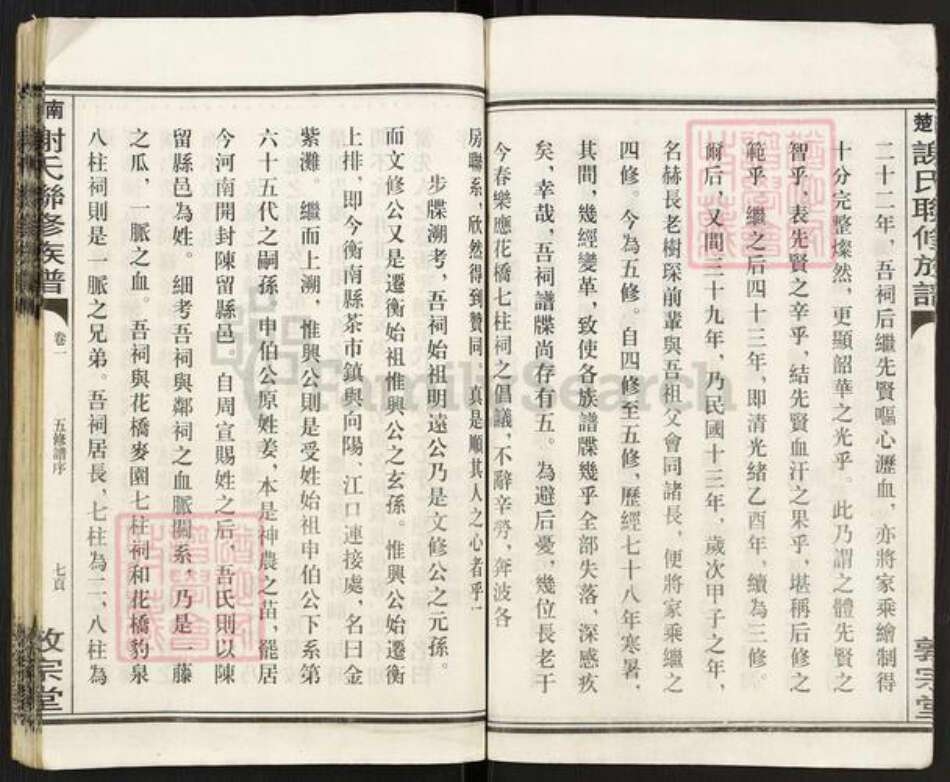 二十二年，吾祠后繼先賢嘔心瀝血，亦將家乘繪制得
十分完整燦然，更顯韶華之光乎。此乃謂之體先賢之
智乎，表先賢之辛乎，結先賢血汗之果乎，堪稱后修之
範乎。繼之后四十三年，即清光緒乙酉年，續為三修。
爾后，又間三十九年，乃民國十三年，歲次甲子之年，
名赫長老樹琛前輩與吾祖父會同諸長，便將家乘繼之
四修。今為五修。自四修至五修，歷經七十八年寒暑，
其間，幾經變革，致使各族譜牒幾乎全部失落，深感疚
矣，幸哉，吾祠譜牒尚存有五。為避后憂，幾位長老于
今春樂應花橋七柱祠之倡議，不辭辛勞，奔波各
房聯系，欣然得到贊同，真是順其人之心者乎！
步牒溯考，吾祠始祖明遠公乃是文修公之元孫。
而文修公又是遷衡始祖惟興公之玄孫。惟興公始遷衡
上排，即今衡南縣茶市鎮興向陽、江口連接處，名曰金
紫灘。繼而上溯，惟興公則是受姓始祖申伯公下系第
六十五代之嗣孫，申伯公原姓姜，本是神農之苗，罷居
今河南開封陳留縣邑，自周宣賜姓之后，吾氏則以陳
留縣邑為姓。細考吾祠與鄰祠之血脈關系，乃是一藤
之瓜，一脈之血。吾祠與花橋麥園七柱祠和花橋豹泉
八柱祠則是一脈之兄弟。吾祠居長，七柱為二，八柱為
南 謝氏聯修族譜
卷一
五修譜序
七頁
敦宗堂
楚
氏聯修族譜
敦宗堂
FamilySearch